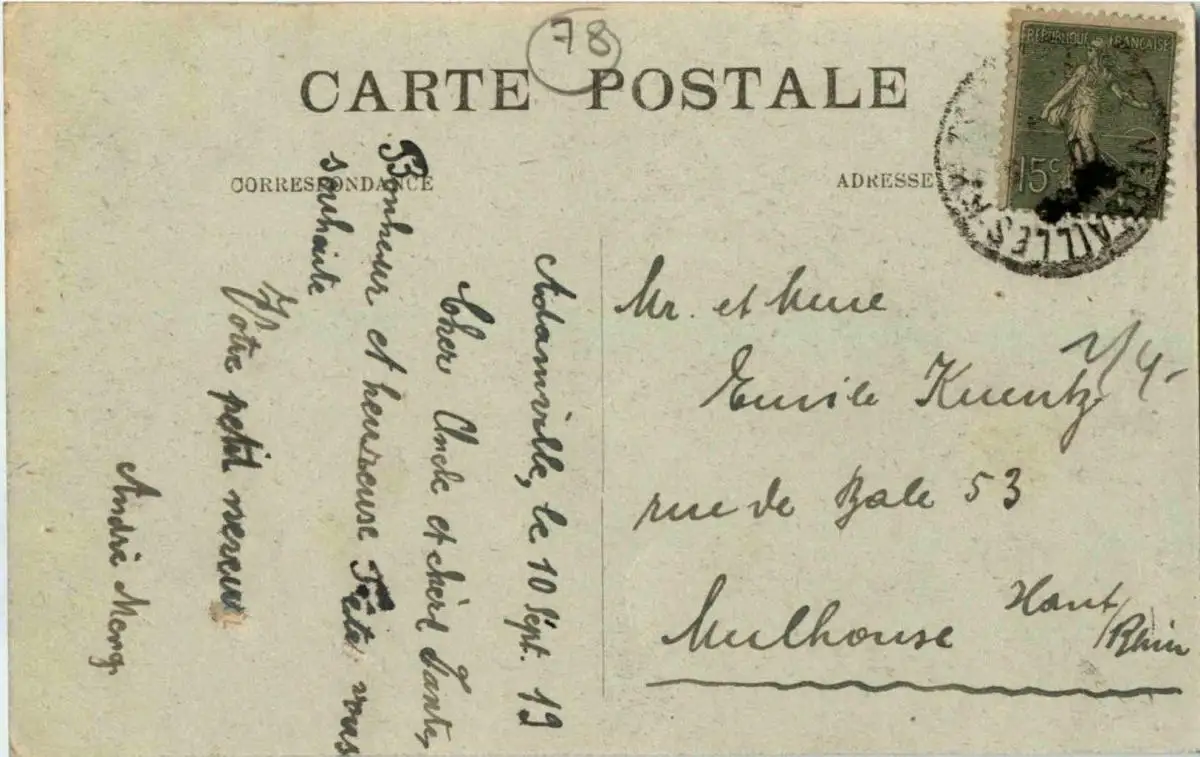 78
CARTE POSTALE
CORRESPONDANCE
ADRESSE
RÉPUBLIQUE FRANÇAISE
15c
VERSAILLES
Adamville, le 10 Sept. 19
Cher Oncle et chère Tante,
Bonheur et heureuse Fête vous
souhaite
Votre petit neveu
André Meng.
Mr. et Mme
Emile Kuentz
rue de Bale 53
Mulhouse Haut/
Rhin